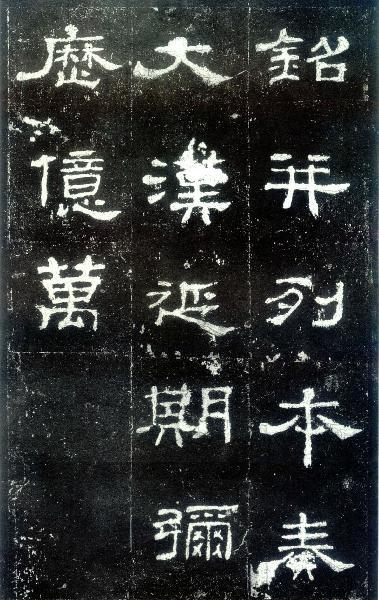 銘并列本奏
大漢延期彌
歷億萬